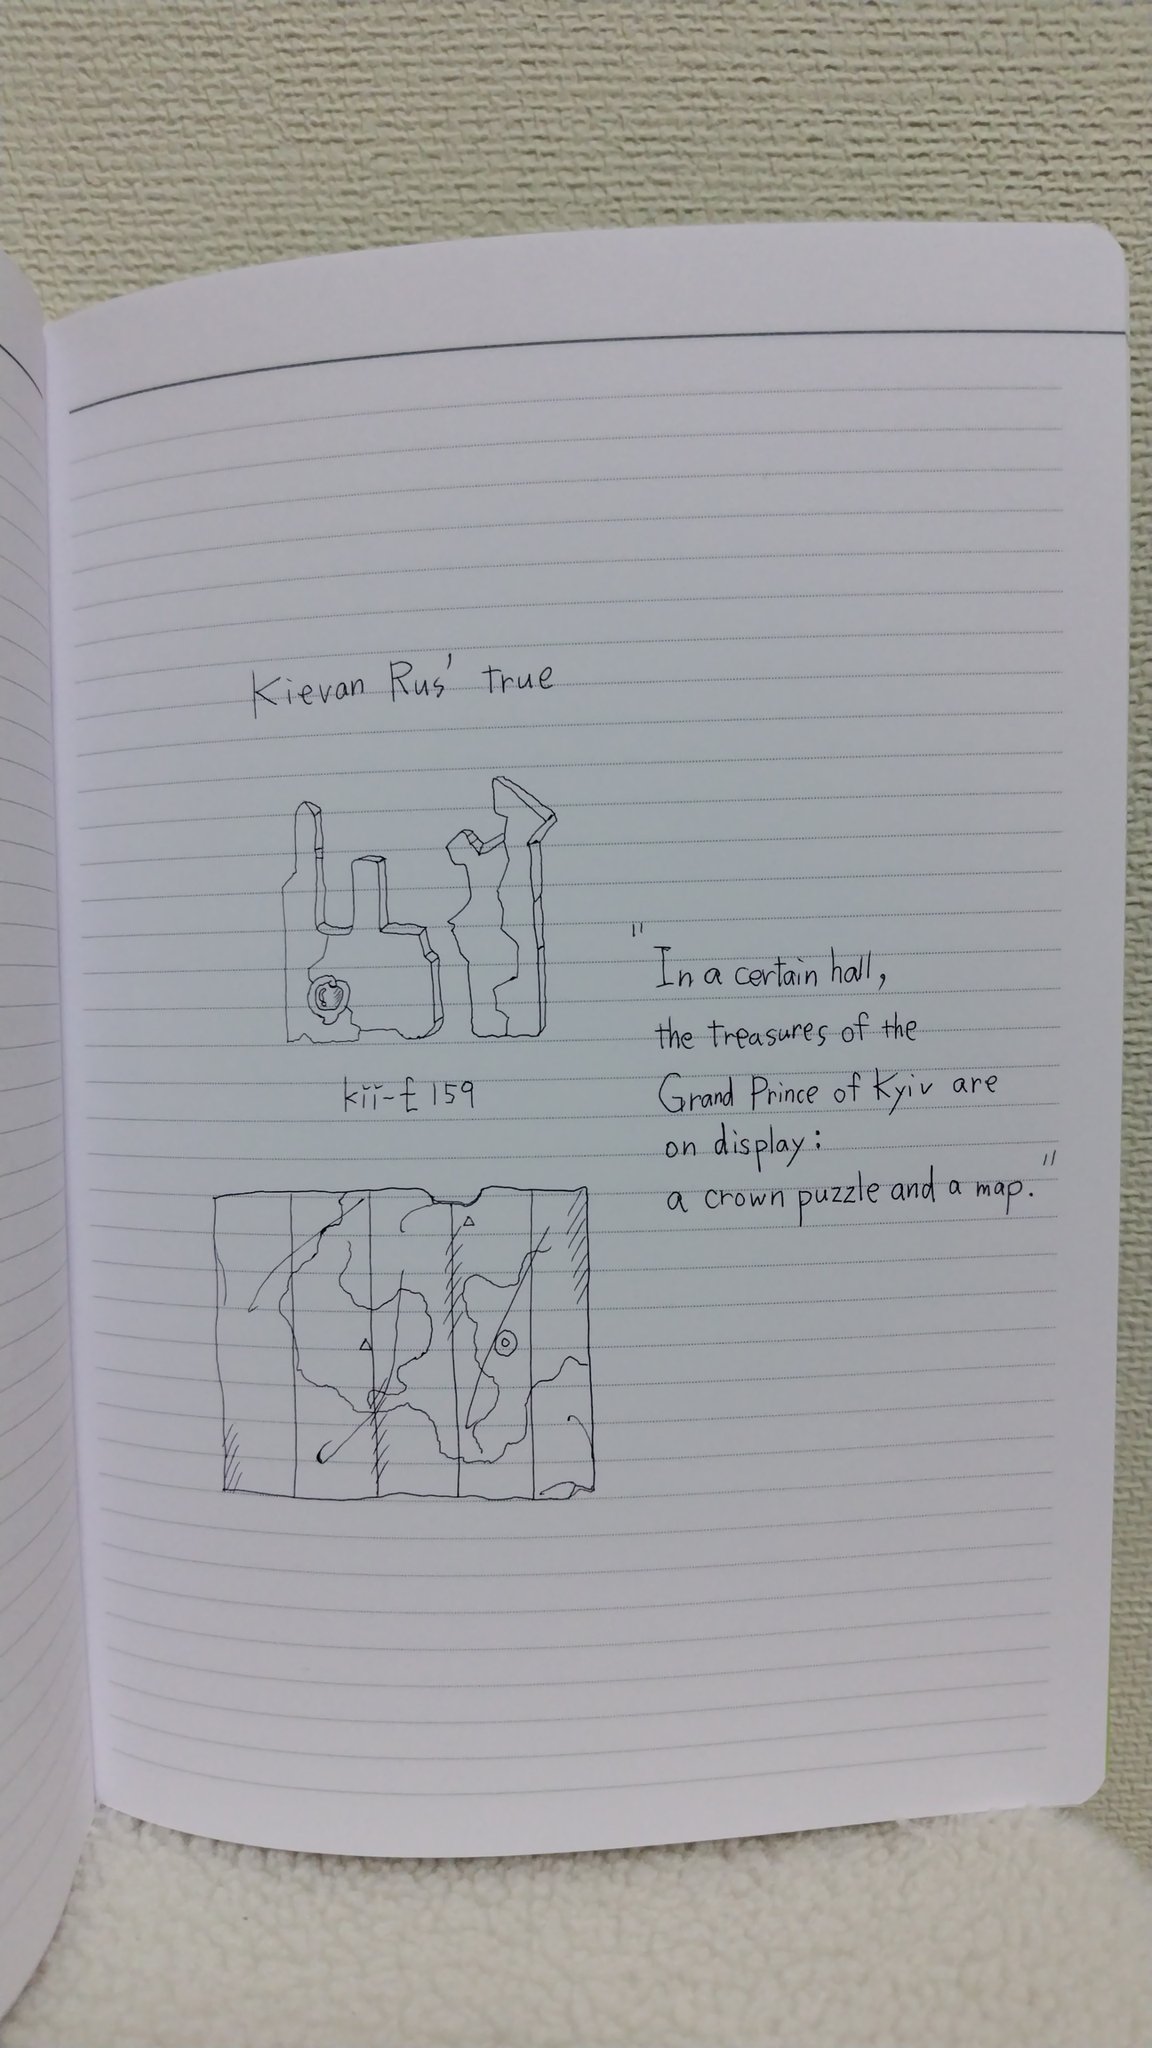 Kievan Rus' true
"In a certain hall,
the treasures of the
Grand Prince of Kyiv are
on display:
a crown puzzle and a map."
kïï-£ 159